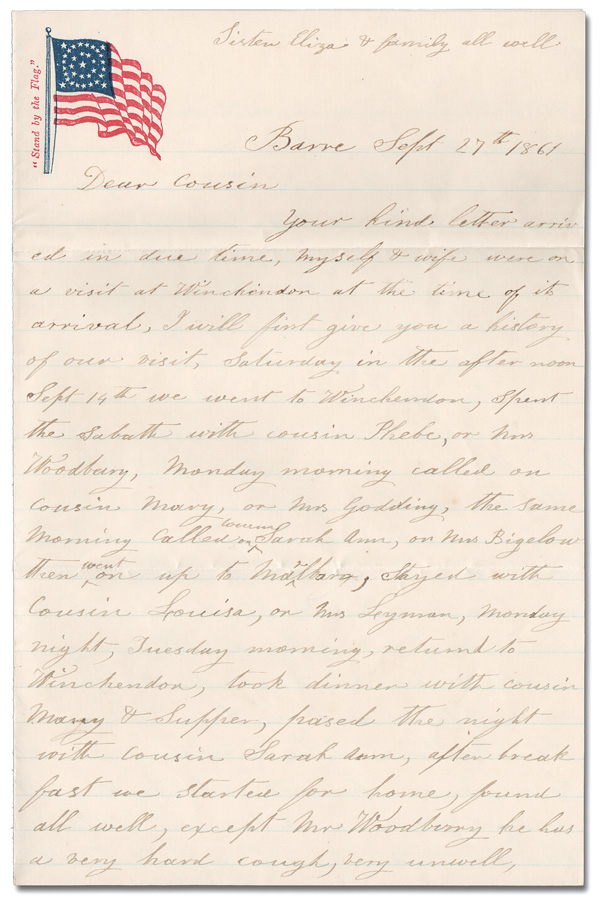 Sister Eliza & family all well
"Stand by the Flag."
Barre Sept 27th 1861
Dear Cousin
Your kind letter arriv
ed in due time, myself & wife were on
a visit at Winchendon at the time of its
arrival, I will first give you a history
of our visit, Saturday in the after noon
Sept 14th we went to Winchendon, Spent
the Sabath with cousin Phebe, or Mrs
Woodbury, Monday morning called on
Cousin Mary, or Mrs Godding, the same
morning Called on cousin Sarah Ann, or Mrs Bigelow
then went on up to Marlboro, Stayed with
Cousin Louisa, or Mrs Lyman, Monday
night, Tuesday morning, returnd to
Winchendon, took dinner with cousin
Mary & Supper, pased the night
with Cousin Sarah Ann, after break
fast we started for home, found
all well, except Mr Woodberry he has
a very hard cough, very unwell,